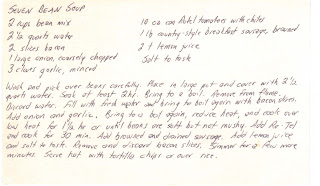 SEVEN BEAN SOUP
2 cups bean mix
2 1/2 quarts water
2 slices bacon
1 large onion, coarsely chopped
3 cloves garlic, minced
10 oz can Rotel tomatoes with chiles
1 lb country-style breakfast sausage, browned
2 t lemon juice
Salt to taste
Wash and pick over beans carefully. Place in large pot and cover with 2 1/2
quarts water. Soak at least 2 hrs. Bring to a boil. Remove from flame.
Discard water. Fill with fresh water and bring to boil again with bacon slices.
Add onion and garlic. Bring to a boil again, reduce heat, and cook over
low heat for 1 1/2 hr or until beans are soft but not mushy. Add Ro-Tel
and cook for 30 min. Add browned and drained sausage. Add lemon juice
and salt to taste. Remove and discard bacon slices. Simmer for a few more
minutes. Serve hot with tortilla chips or over rice.